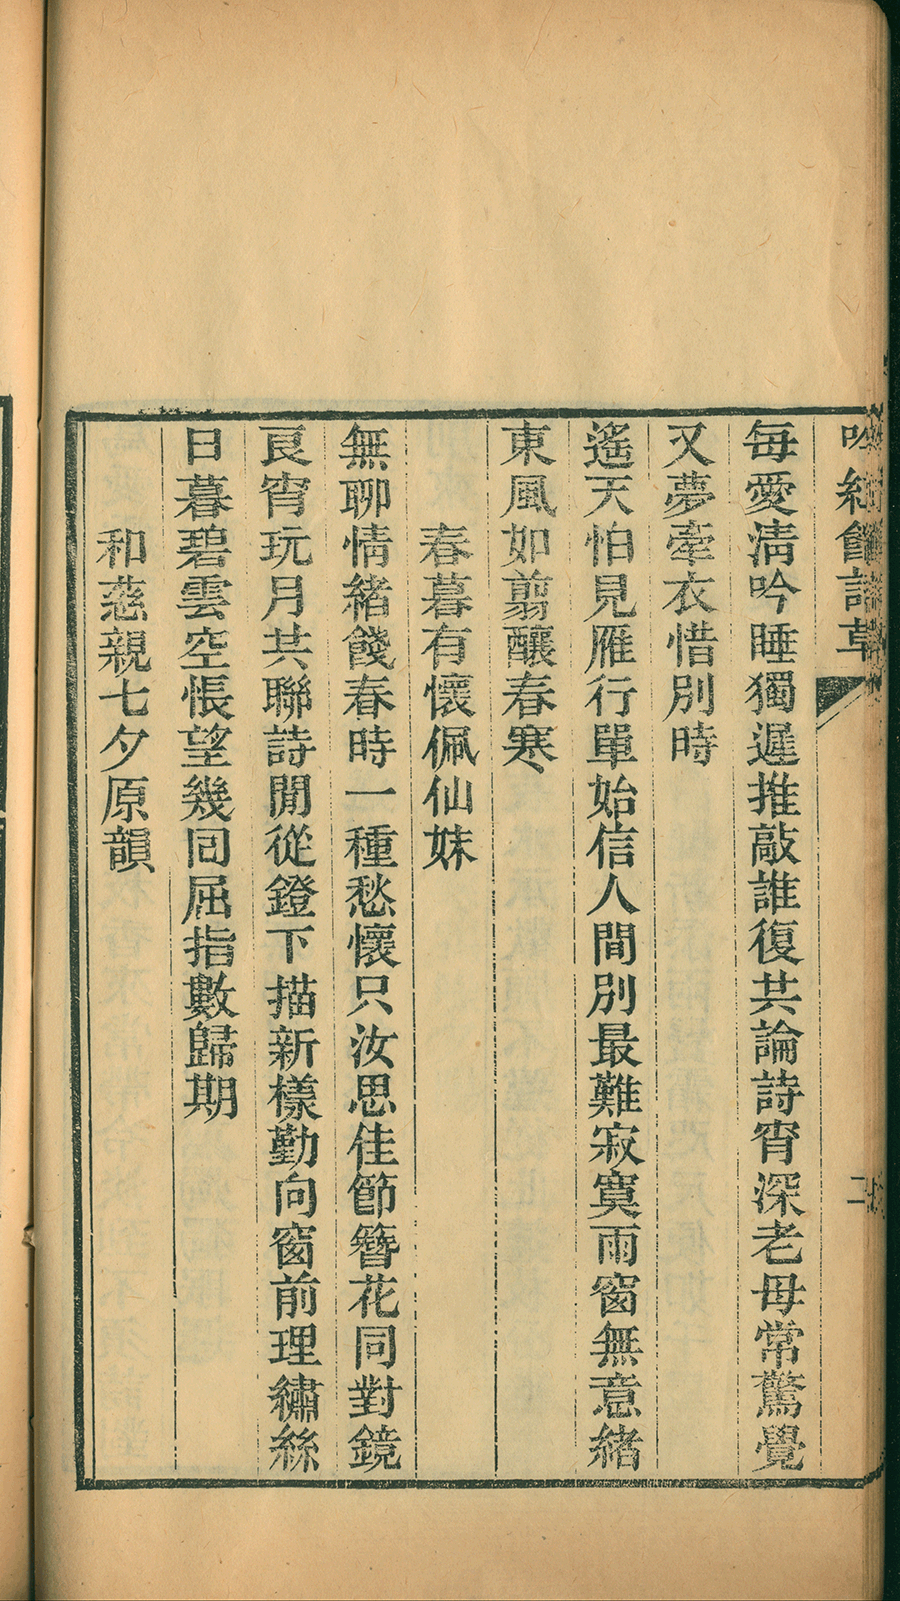 吟紅館詩草
二
每愛淸吟睡獨遲推敲誰復共論詩宵深老母常驚覺
又夢牽衣惜別時
遙天怕見雁行單始信人間別最難寂寞雨窗無意緒
東風如翦釀春寒
春暮有懷佩仙妹
無聊情緒餞春時一種愁懷只汝思佳節簪花同對鏡
良宵玩月共聯詩閒從鐙下描新樣勤向窗前理繡絲
日暮碧雲空悵望幾回屈指數歸期
和慈親七夕原韻